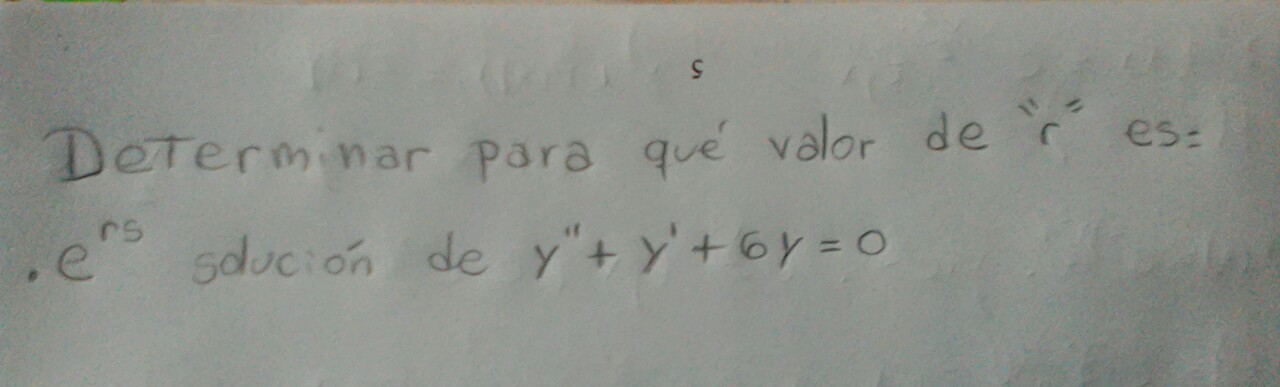 s
Determinar para qué valor de "r" es=
.e^rs solución de y"+ y'+6y=0